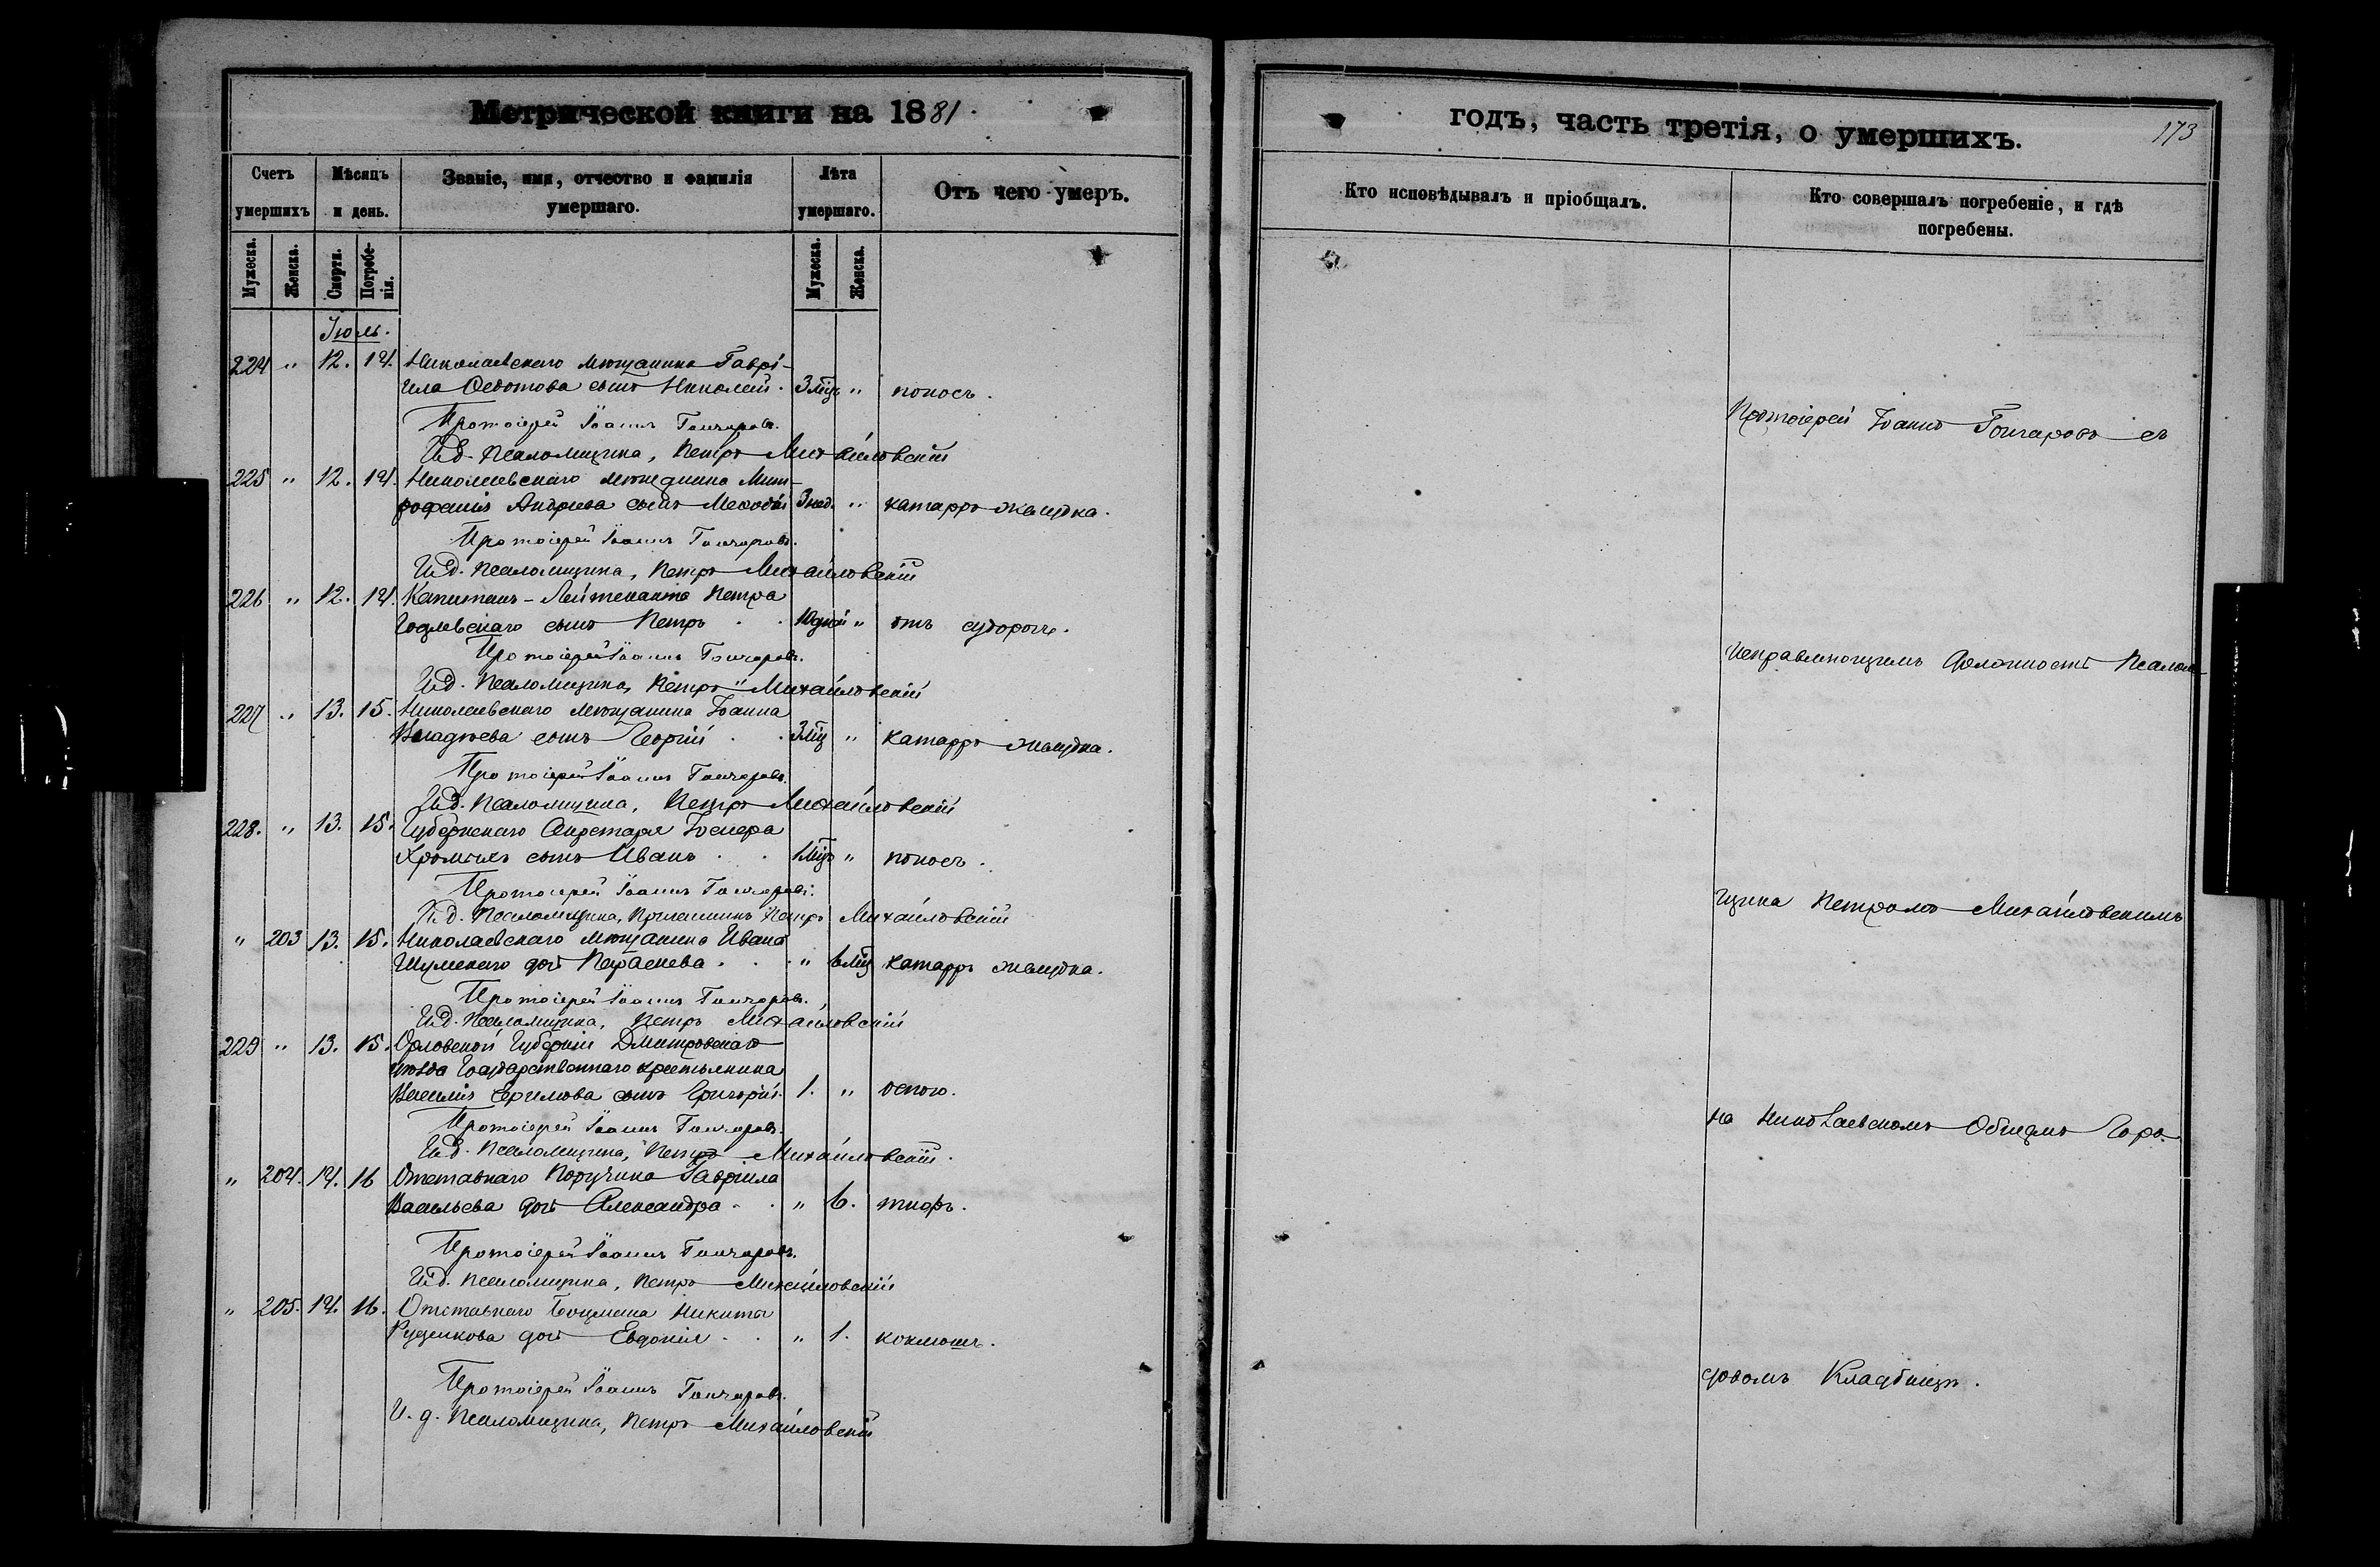 Метрической книги на 1881
годъ, часть третія, о умершихъ.
173
Счетъ умершихъ
Мѣсяцъ и день.
Званіе, имя, отчество и фамилія умершаго.
Лѣта умершаго.
Отъ чего умеръ.
Кто исповѣдывалъ и пріобщалъ.
Кто совершалъ погребеніе, и гдѣ погребены.
Мужеска. Женска. Смерти. Погребенія. Мужеска. Женска.
Іюль.
224 " 12. 14. Николаевскаго мѣщанина Гаврі-
ила Федотова сынъ Николай. 3 мѣц " поносъ.
Протоіерей Іоаннъ Гончаровъ.
И.д. Псаломщика, Петръ Михайловскій
225 " 12. 14. Николаевскаго мѣщанина Мит-
рофанія Андреева сынъ Мефодій 3 нед. " катарръ желудка.
Протоіерей Іоаннъ Гончаровъ.
И.д. Псаломщика, Петръ Михайловскій
226 " 12. 14. Капитанъ-Лейтенанта Петра
сынъ Петръ . . 10 дней " отъ судорогъ.
Протоіерей Іоаннъ Гончаровъ.
И.д. Псаломщика, Петръ Михайловскій
227 " 13. 15. Николаевскаго мѣщанина Іоанна
сынъ Георгій . . 3 мѣц " катарръ желудка.
Протоіерей Іоаннъ Гончаровъ.
И.д. Псаломщика, Петръ Михайловскій
228. " 13. 15. Губернскаго Секретаря
сынъ Иванъ . . 1 мѣц " поносъ.
Протоіерей Іоаннъ Гончаровъ.
И.д. Псаломщика, Петръ Михайловскій
" 203 13. 15. Николаевскаго мѣщанина Ивана
Шумскаго дочь Параскева . . . " 6 мѣц катарръ желудка.
Протоіерей Іоаннъ Гончаровъ.
И.д. Псаломщика, Петръ Михайловскій
229 " 13. 15. Орловской Губерніи Дмитровскаго
уѣзда Государственнаго крестьянина
Василія Ефимова сынъ Григорій. 1. " оспою.
Протоіерей Іоаннъ Гончаровъ.
И.д. Псаломщика, Петръ Михайловскій.
" 204. 14. 16 Отставнаго Поручика Гавріила
Васильева дочь Александра . . " 6. тифъ.
Протоіерей Іоаннъ Гончаровъ.
И.д. Псаломщика, Петръ Михайловскій
" 205. 14. 16. Отставнаго Боцмана Никиты
дочь Евдокія . . " 1. коклюшъ.
Протоіерей Іоаннъ Гончаровъ.
И.д. Псаломщика, Петръ Михайловскій
Протоіерей Іоаннъ Гончаровъ съ
исправляющимъ должность Псалом-
щика Петромъ Михайловскимъ
на Николаевскомъ Общемъ Горо-
домъ Кладбищѣ.